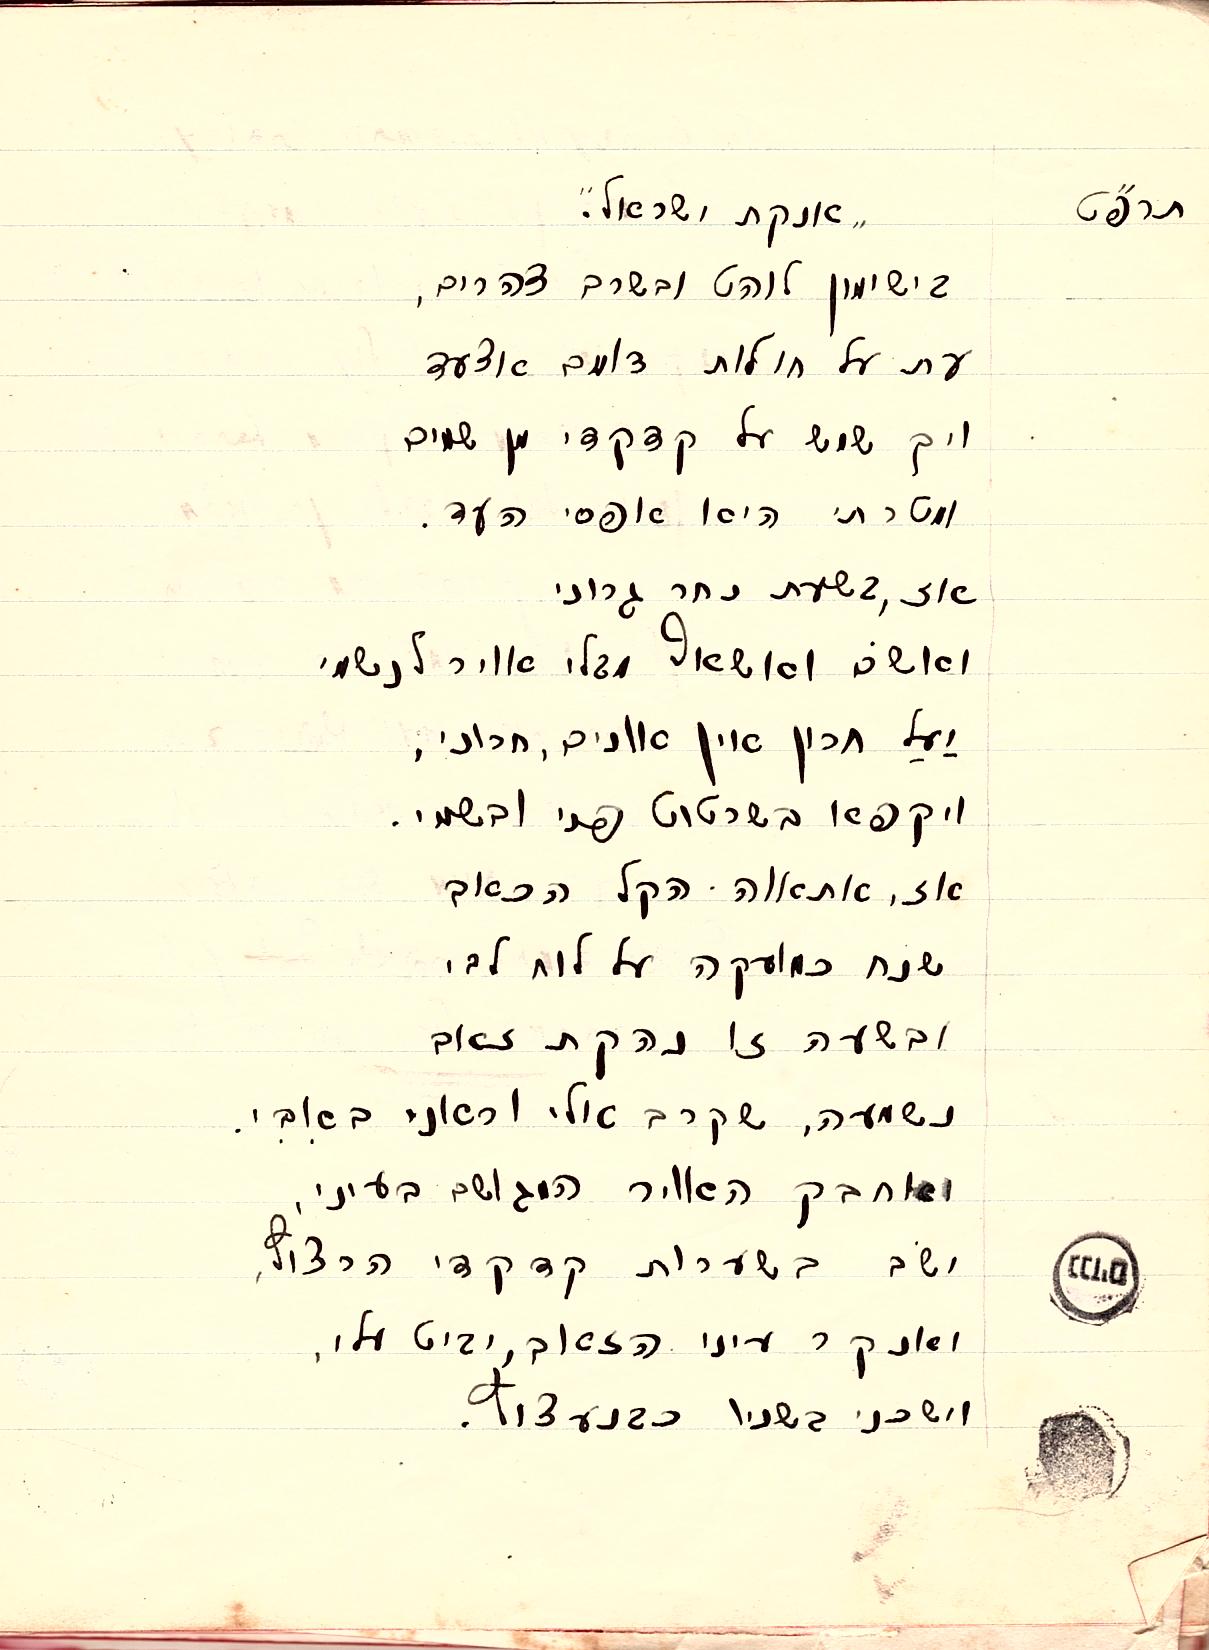 תרפ"ט
„אנקת ישראל".
בישימון לוהט ובשרב צהרים,
עת על חולות דומם אצעד
ויך שמש על קדקדי מן שמים
ומטרתי היא אפסי העד.
אז, בשעת נחר גרוני
ואשם ואשאף מצלי אויר לנשמי
וַעַל חרון אין אונים, חרוני,
ויקפאו בשרטוט פני ובשמי.
אז, אתאוה הקל הכאב
שנח כמועקה על לוח לבי
ובשעה זו נהקת זאב
נשמעה, שקרב אלי וראני באִבִּי.
ואחבק האויר המגושם בעיני,
ושב בשערות קדקדי הרצוף,
ואנקר עיני הזאב, יביט עלי,
וישכני בשניו כבנעצוץ.